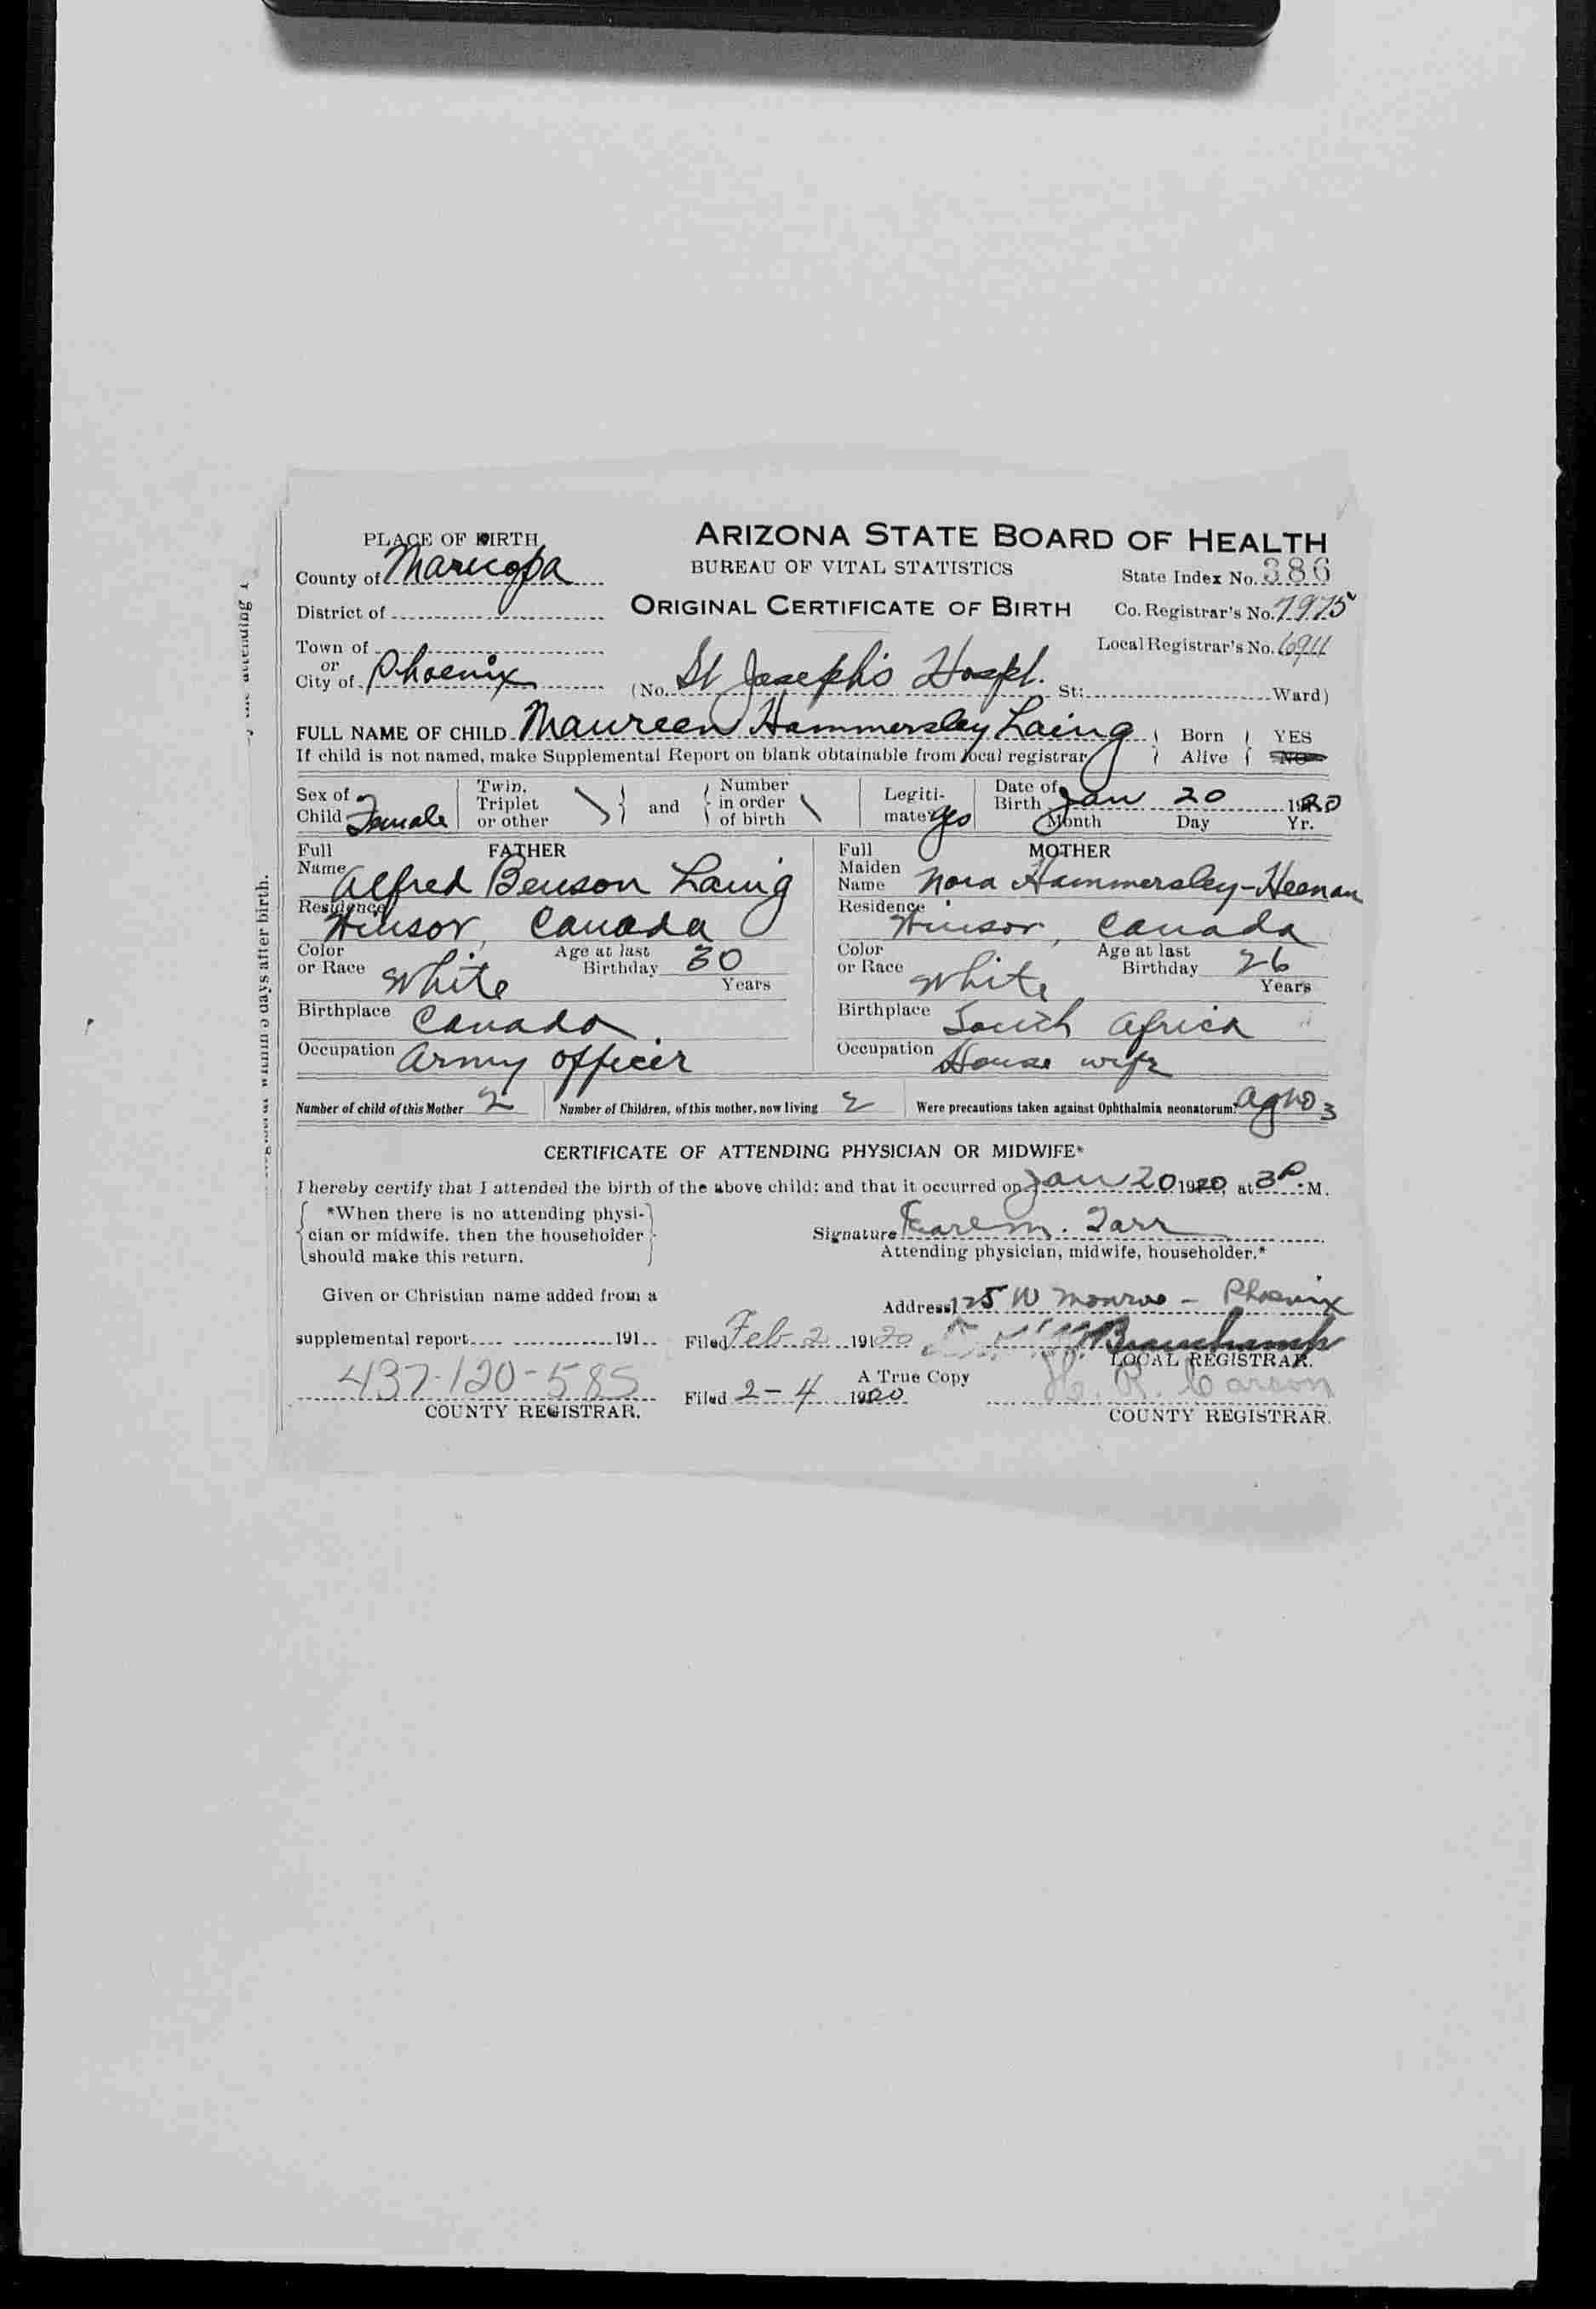 PLACE OF BIRTH
ARIZONA STATE BOARD OF HEALTH
County of Maricopa
BUREAU OF VITAL STATISTICS
State Index No. 386
District of
ORIGINAL CERTIFICATE OF BIRTH
Co. Registrar's No. 7975
Town of
or
City of Phoenix
(No. St Joseph's Hospt. St; Ward)
Local Registrar's No.
FULL NAME OF CHILD Maureen Hammersley Laing
Born Alive { YES NO
If child is not named, make Supplemental Report on blank obtainable from local registrar
Sex of Child Female
Twin, Triplet or other
and
Number in order of birth
Legitimate? yes
Date of Birth Jan 20 1920
Month Day Yr.
FATHER
Full Name Alfred Benson Laing
Residence Winsor, Canada
Color or Race White
Age at last Birthday 30 Years
Birthplace Canada
Occupation Army officer
MOTHER
Full Maiden Name Nora Hammersley-Heenan
Residence Winsor, Canada
Color or Race White
Age at last Birthday 26 Years
Birthplace South Africa
Occupation House wife
Number of child of this Mother 2
Number of Children, of this mother, now living 2
Were precautions taken against Ophthalmia neonatorum? AgNO3
CERTIFICATE OF ATTENDING PHYSICIAN OR MIDWIFE*
I hereby certify that I attended the birth of the above child; and that it occurred on Jan 20 1920, at 3 P. M.
*When there is no attending physi-
cian or midwife, then the householder
should make this return.
Signature M. Tarr
Attending physician, midwife, householder.*
Given or Christian name added from a
Address 125 W Monroe - Phoenix
supplemental report 191
Filed Feb 2 1920
Beauchamp
LOCAL REGISTRAR.
437-120-585
COUNTY REGISTRAR.
A True Copy
Filed 2-4 1920
H. R. Carson
COUNTY REGISTRAR.
days after birth.